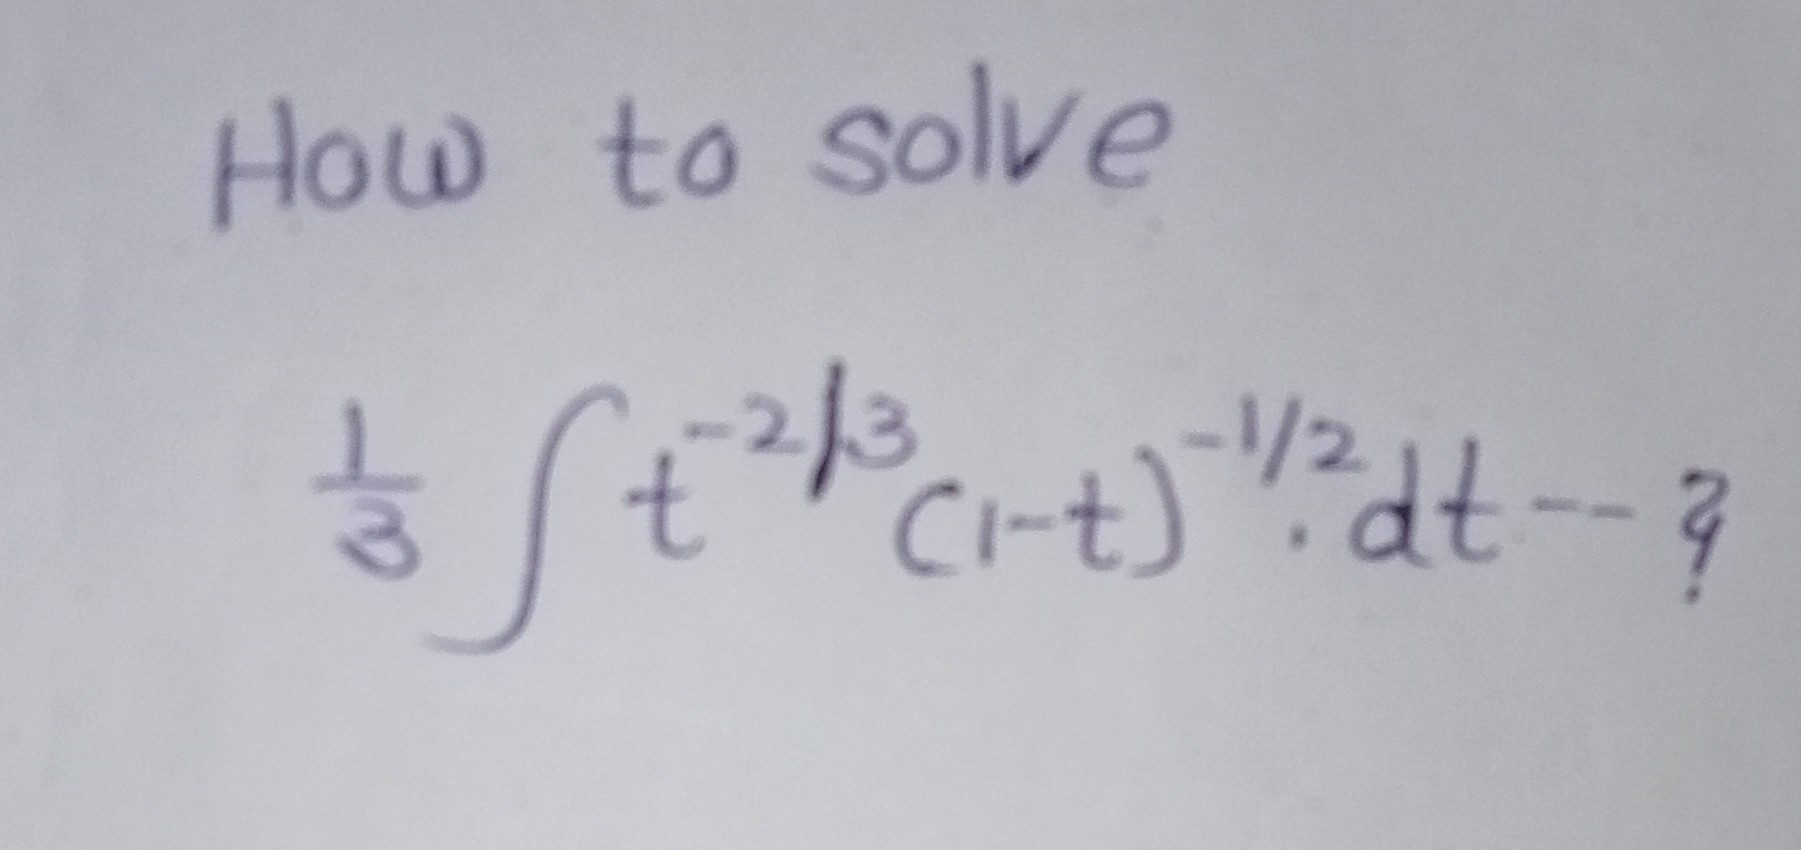 How to solve
1/3 ∫ t^-2/3 (1-t)^-1/2 . dt -- ?